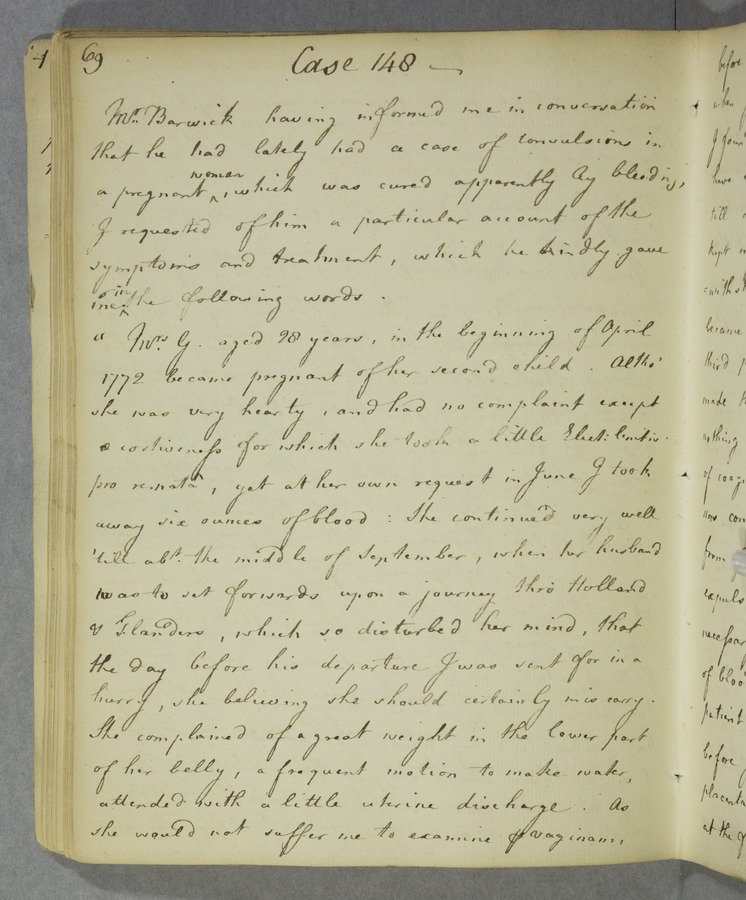 69
Case 148 —
Mr. Barwick having informed me in conversation
that he had lately had a case of convulsions in
a pregnant ^woman, which was cured apparently by bleeding,
I requested of him a particular account of the
symptoms and treatment, which he kindly gave
me ^in the following words.
" Mrs. G. aged 28 years, in the beginning of April
1772 became pregnant of her second child. Altho'
she was very hearty, and had no complaint except
costiveness for which she took a little Elect: lenitiv.
pro renata, yet at her own request in June I took
away six ounces of blood: She continued very well
'till abt. the middle of September, when her husband
was to set forwards upon a journey thro Holland
& Flanders, which so disturbed her mind, that
the day before his departure I was sent for in a
hurry, she believing she should certainly miscary.
She complained of a great weight in the lower part
of her belly, a frequent motion to make water,
attended with a little uterine discharge. As
she would not suffer me to examine vaginam,
before
when
I foun
have
till
kept
with
became
third
made
nothing
of coag
now con
from
expuls
necessar
of bloo
patient
before
placenta
at the